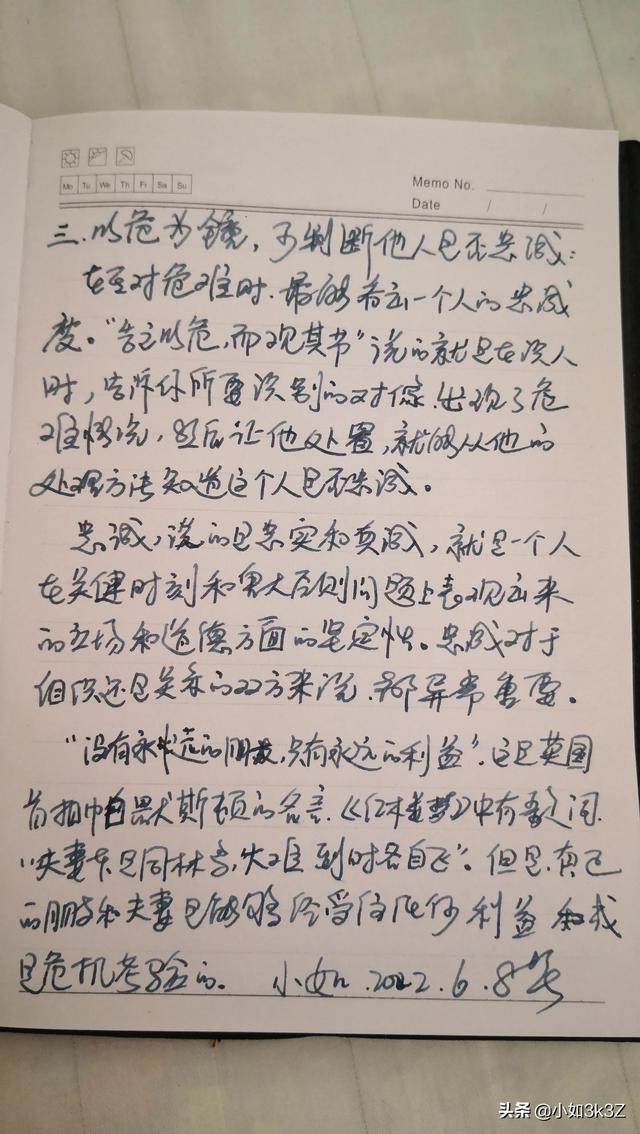 Mo Tu We Th Fr Sa Su
Memo No.
Date / /
三.以危为镜,可判断他人是否忠诚:
在面对危难时.最能看出一个人的忠诚
度。“告之以危,而观其节”说的就是在识人
时,告诉你所要识别的对像.出现了危
难情况,然后让他处置,就能从他的
处理方法知道这个人是否忠诚。
忠诚,说的是忠实和真诚,就是一个人
在关键时刻和重大原则问题上表现出来
的立场和道德方面的坚定性。忠诚对于
组织还是关系的双方来说.都异常重要。
“没有永远的朋友,只有永远的利益”.这是英国
首相帕默斯顿的名言.《红楼梦》中有句词.
“夫妻本是同林鸟,大难到时各自飞”。但是.真正
的朋友和夫妻是能够经受住任何利益和或
是危机考验的。 小如.2022.6.8号
头条 @小如3k3Z